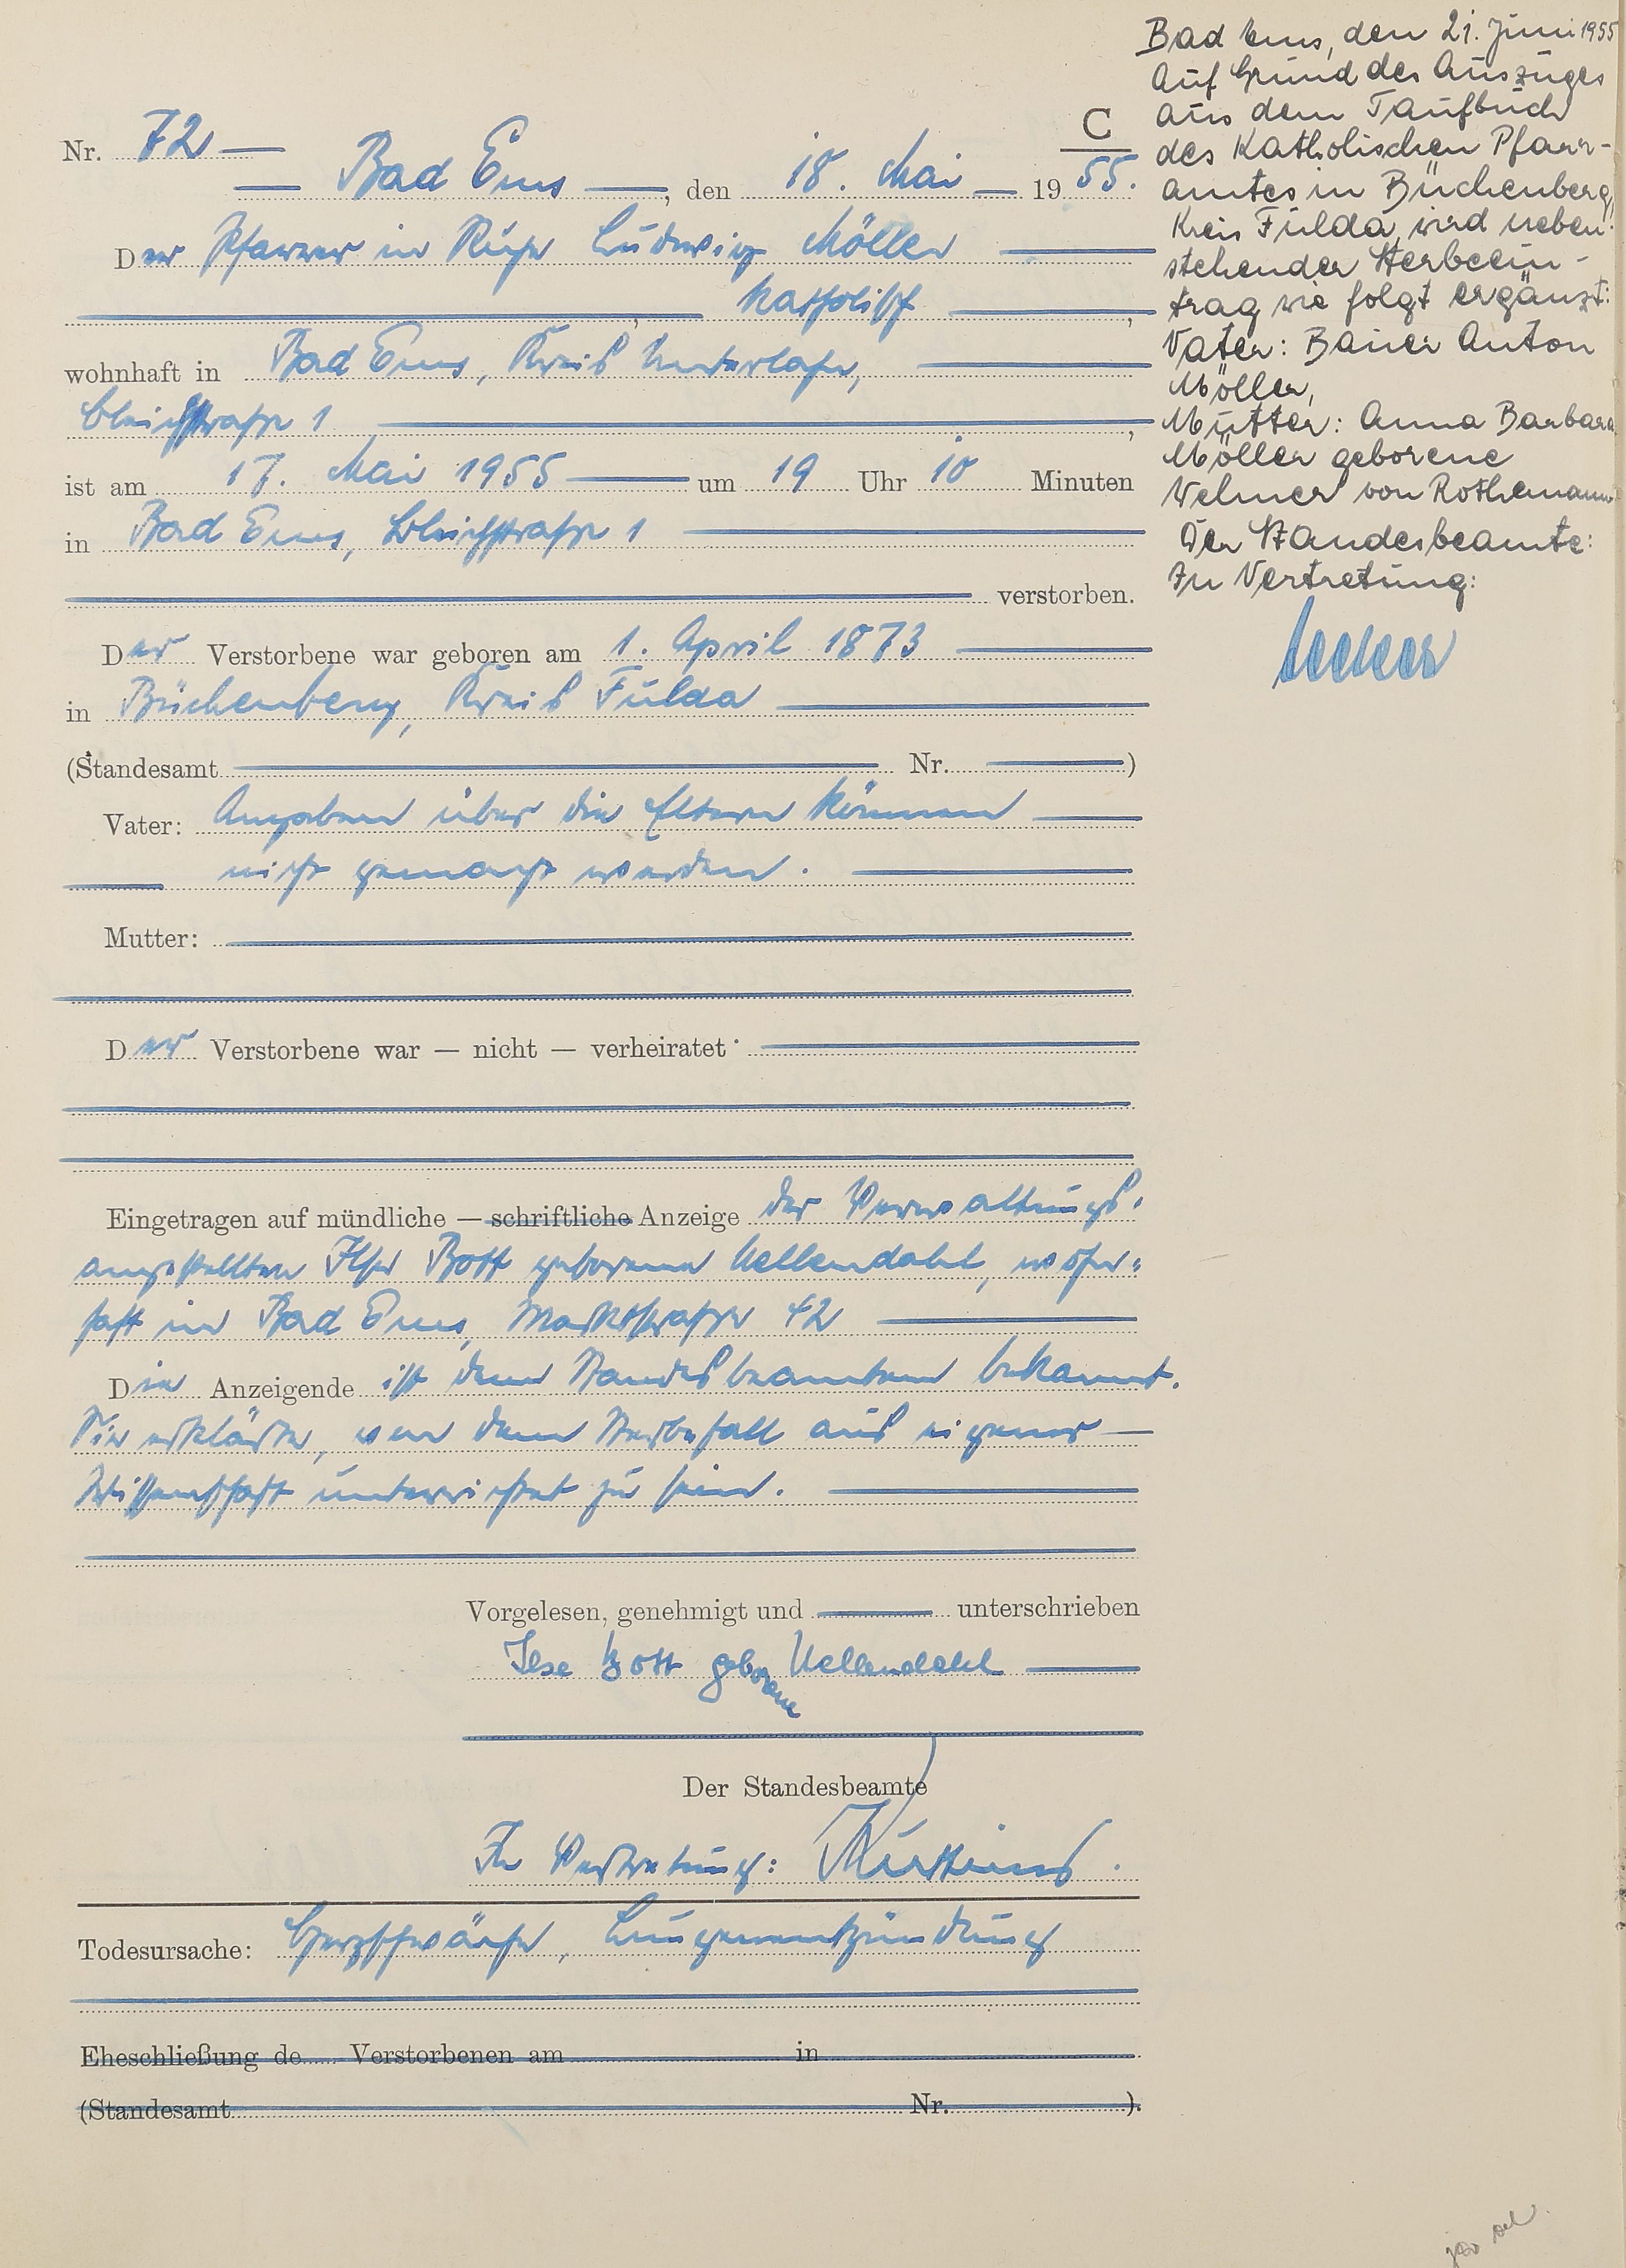 C
Nr. 72
Bad Ems, den 18. Mai 1955.
Der Pfarrer in Ruhe Ludwig Möller
, katholisch,
wohnhaft in Bad Ems, Kreis Unterlahn,
Bleichstraße 1,
ist am 17. Mai 1955 um 19 Uhr 10 Minuten
in Bad Ems, Bleichstraße 1
verstorben.
Der Verstorbene war geboren am 1. April 1873
in Büchenberg, Kreis Fulda
(Standesamt Nr. )
Vater: Angaben über die Eltern können
nicht gemacht werden.
Mutter:
Der Verstorbene war — nicht — verheiratet
Eingetragen auf mündliche — schriftliche Anzeige der Verwaltungs-
angestellten Ilse Bott geborene Uellendahl, wohn-
haft in Bad Ems, Marktstraße 42
Die Anzeigende ist dem Standesbeamten bekannt.
Sie erklärte, von dem Sterbefall aus eigener
Wissenschaft unterrichtet zu sein.
Vorgelesen, genehmigt und unterschrieben
Ilse Bott geborene Uellendahl
Der Standesbeamte
In Vertretung:
Todesursache: Herzschwäche, Lungenentzündung
Eheschließung de Verstorbenen am in
(Standesamt Nr. ).
Bad Ems, den 21. Juni 1955
Auf Grund des Auszuges
aus dem Taufbuch
des Katholischen Pfarr-
amtes in Büchenberg,
Kreis Fulda, wird neben-
stehender Sterbeein-
trag wie folgt ergänzt:
Vater: Bauer Anton
Möller,
Mutter: Anna Barbara
Möller geborene
Wehner von Rothemann
Der Standesbeamte:
In Vertretung: